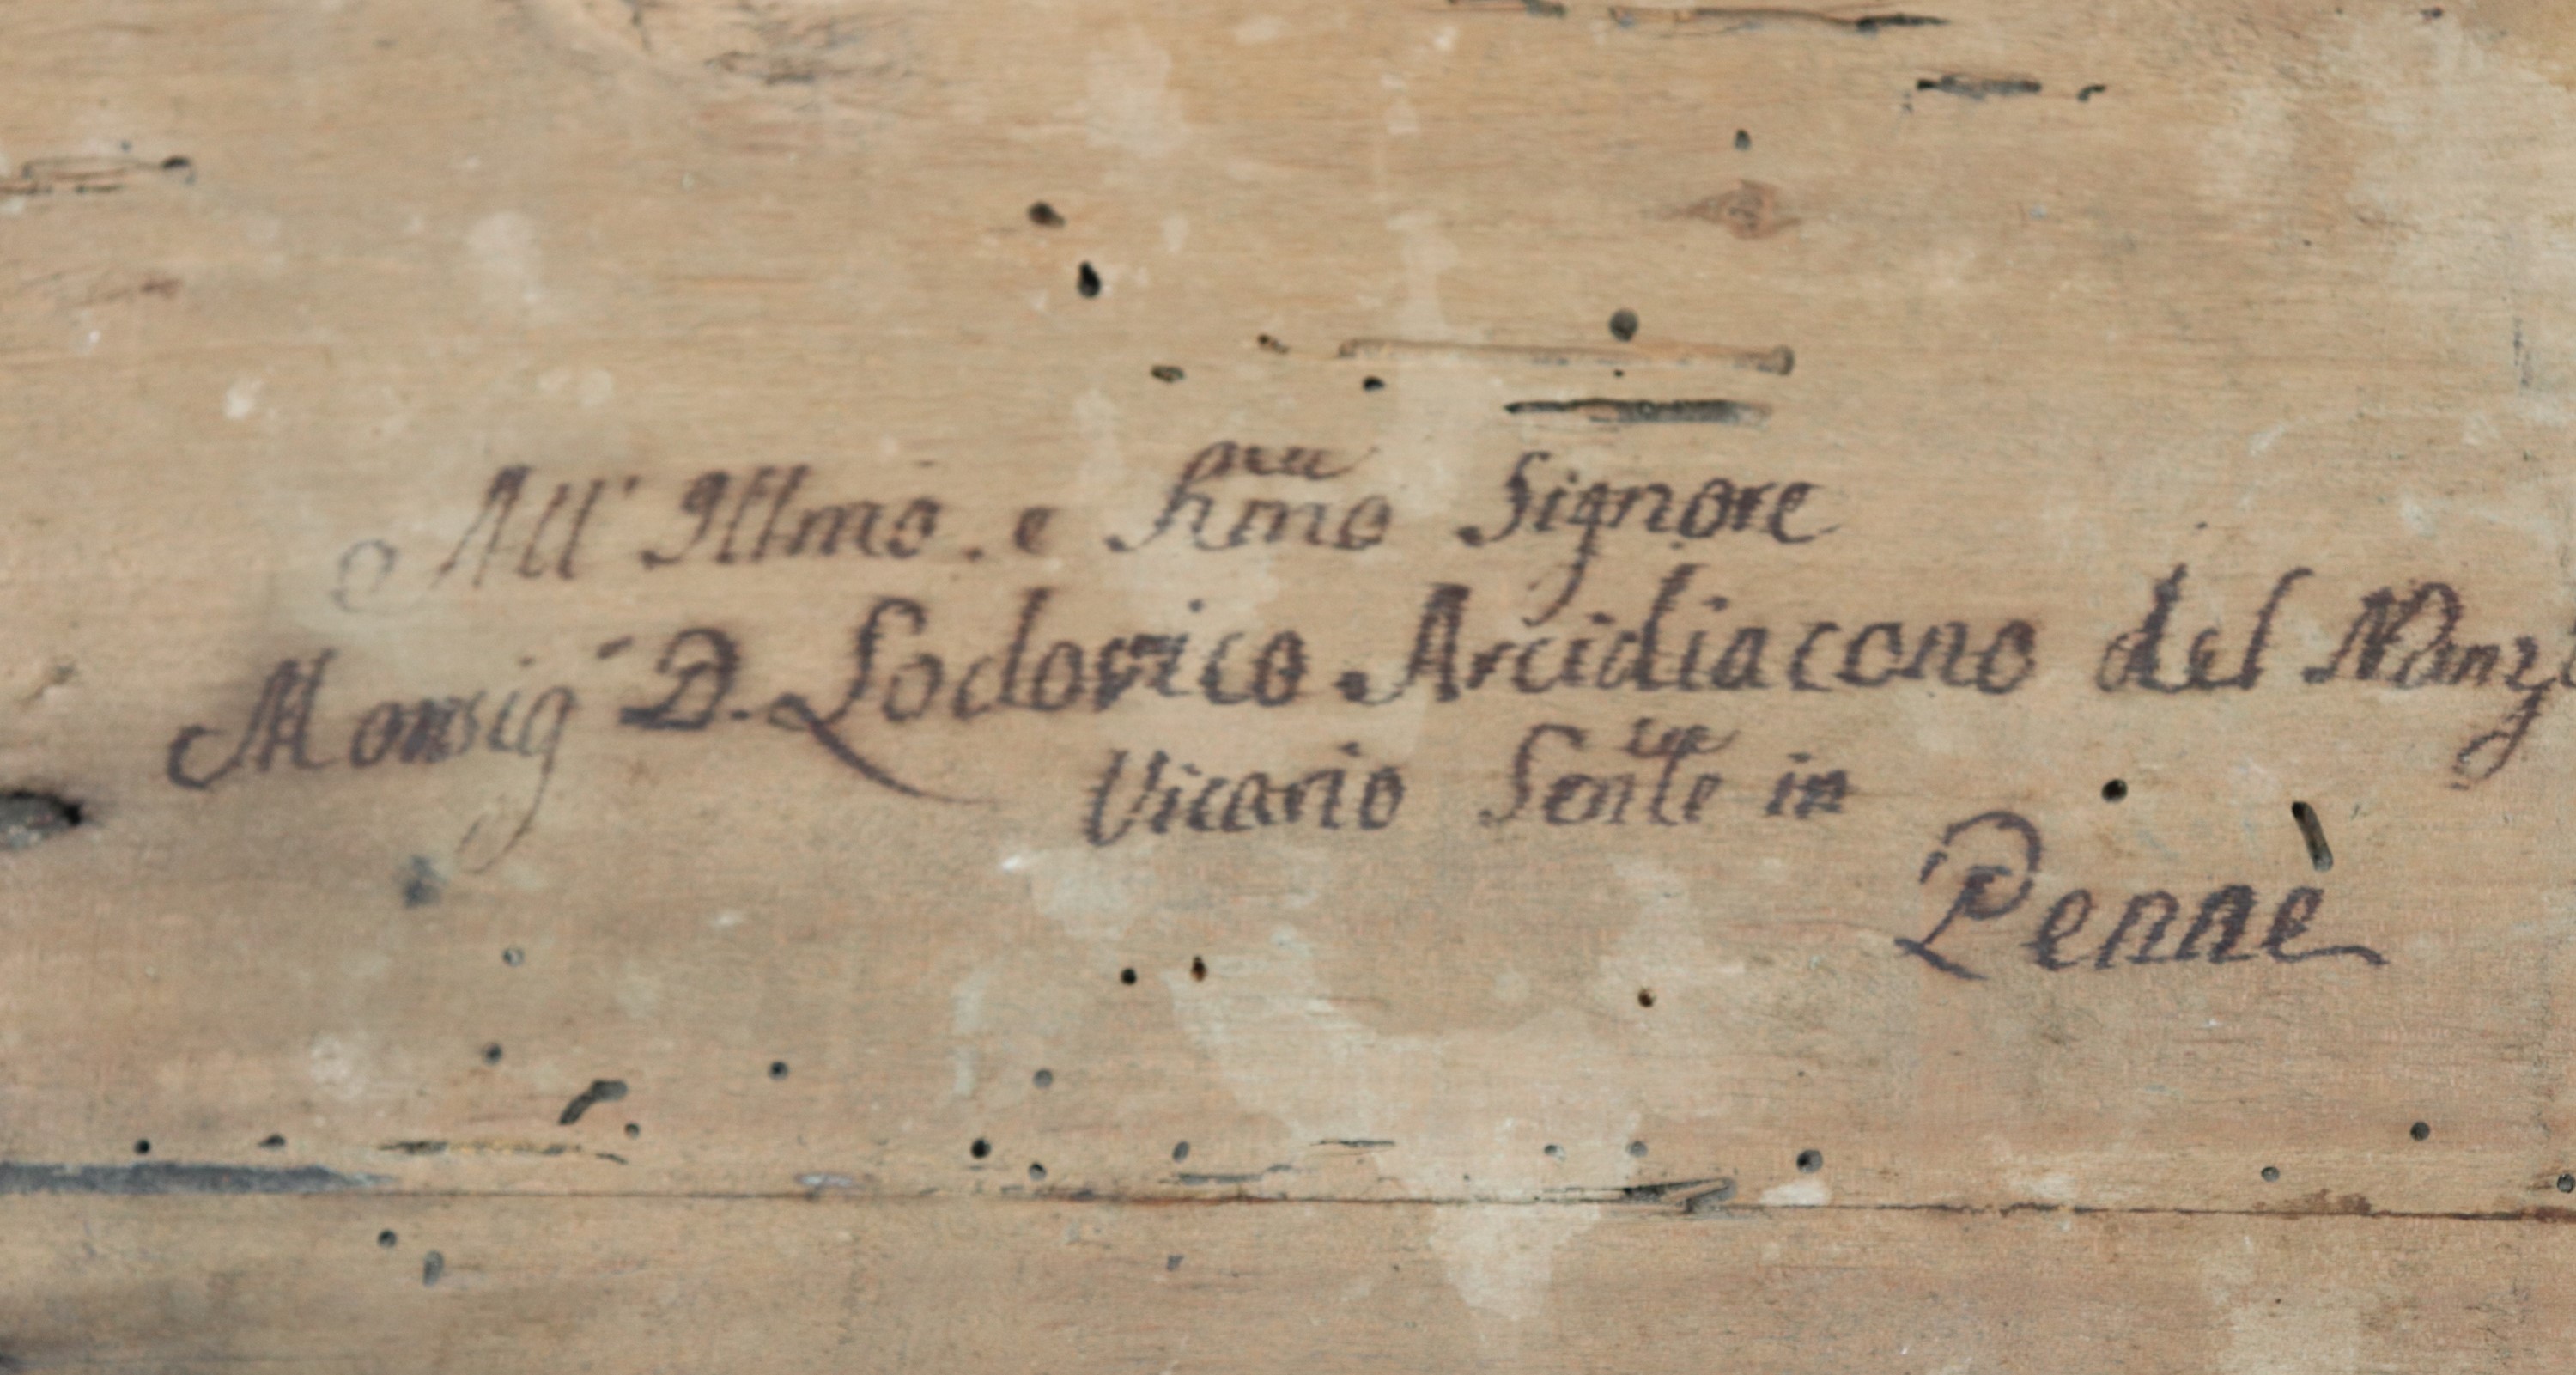 All' Illmo. e Rmo Signore
Monsig D. Lodovico Arcidiacono del
Vicario in
Penne